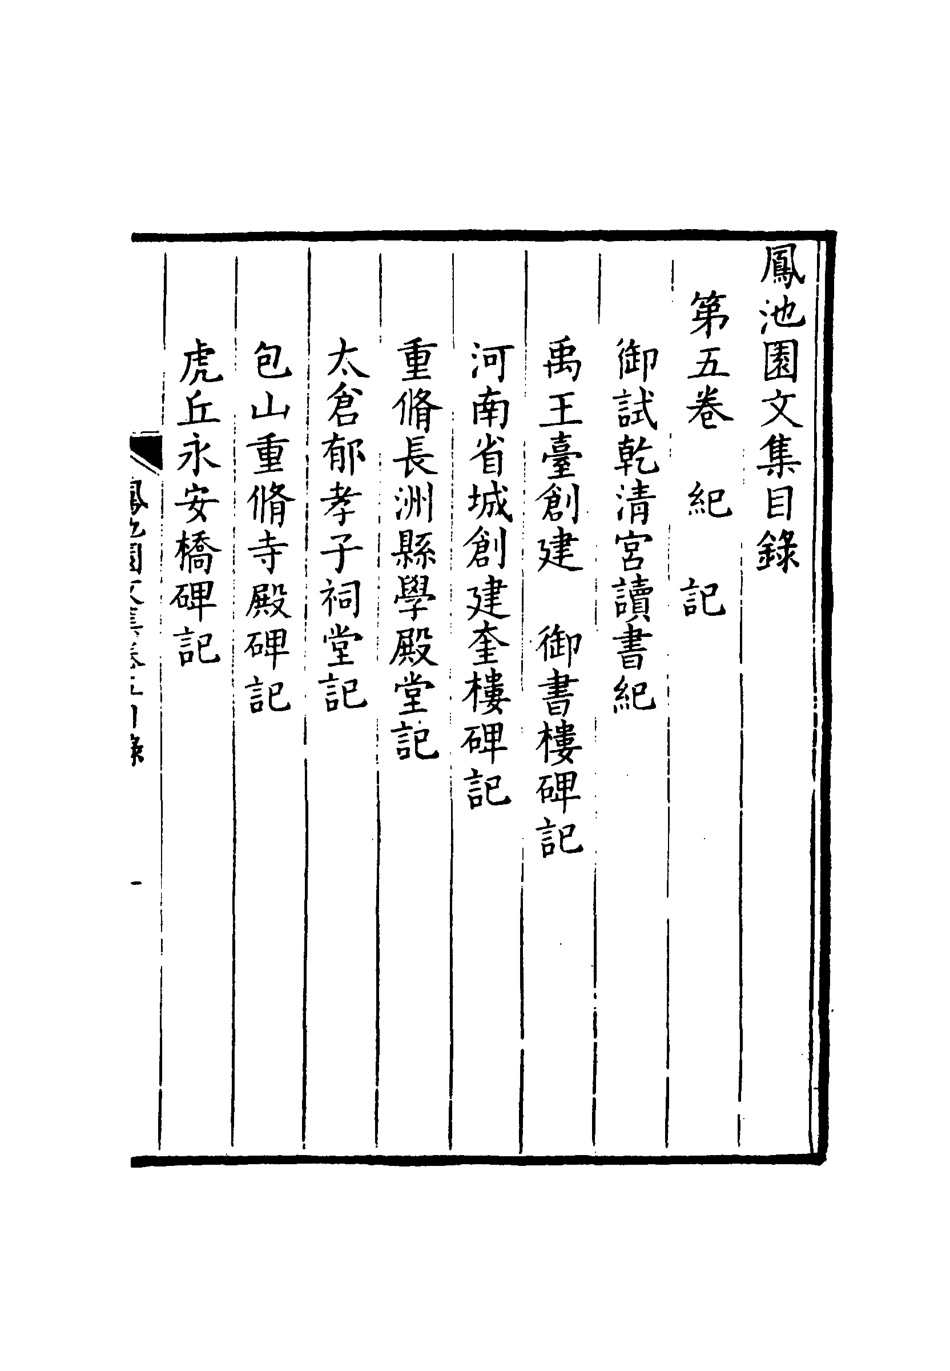 鳳池園文集目錄
第五卷　紀　記
御試乾清宮讀書紀
禹王臺創建　御書樓碑記
河南省城創建奎樓碑記
重脩長洲縣學殿堂記
太倉郁孝子祠堂記
包山重脩寺殿碑記
虎丘永安橋碑記
鳳池園文集卷五目錄
一